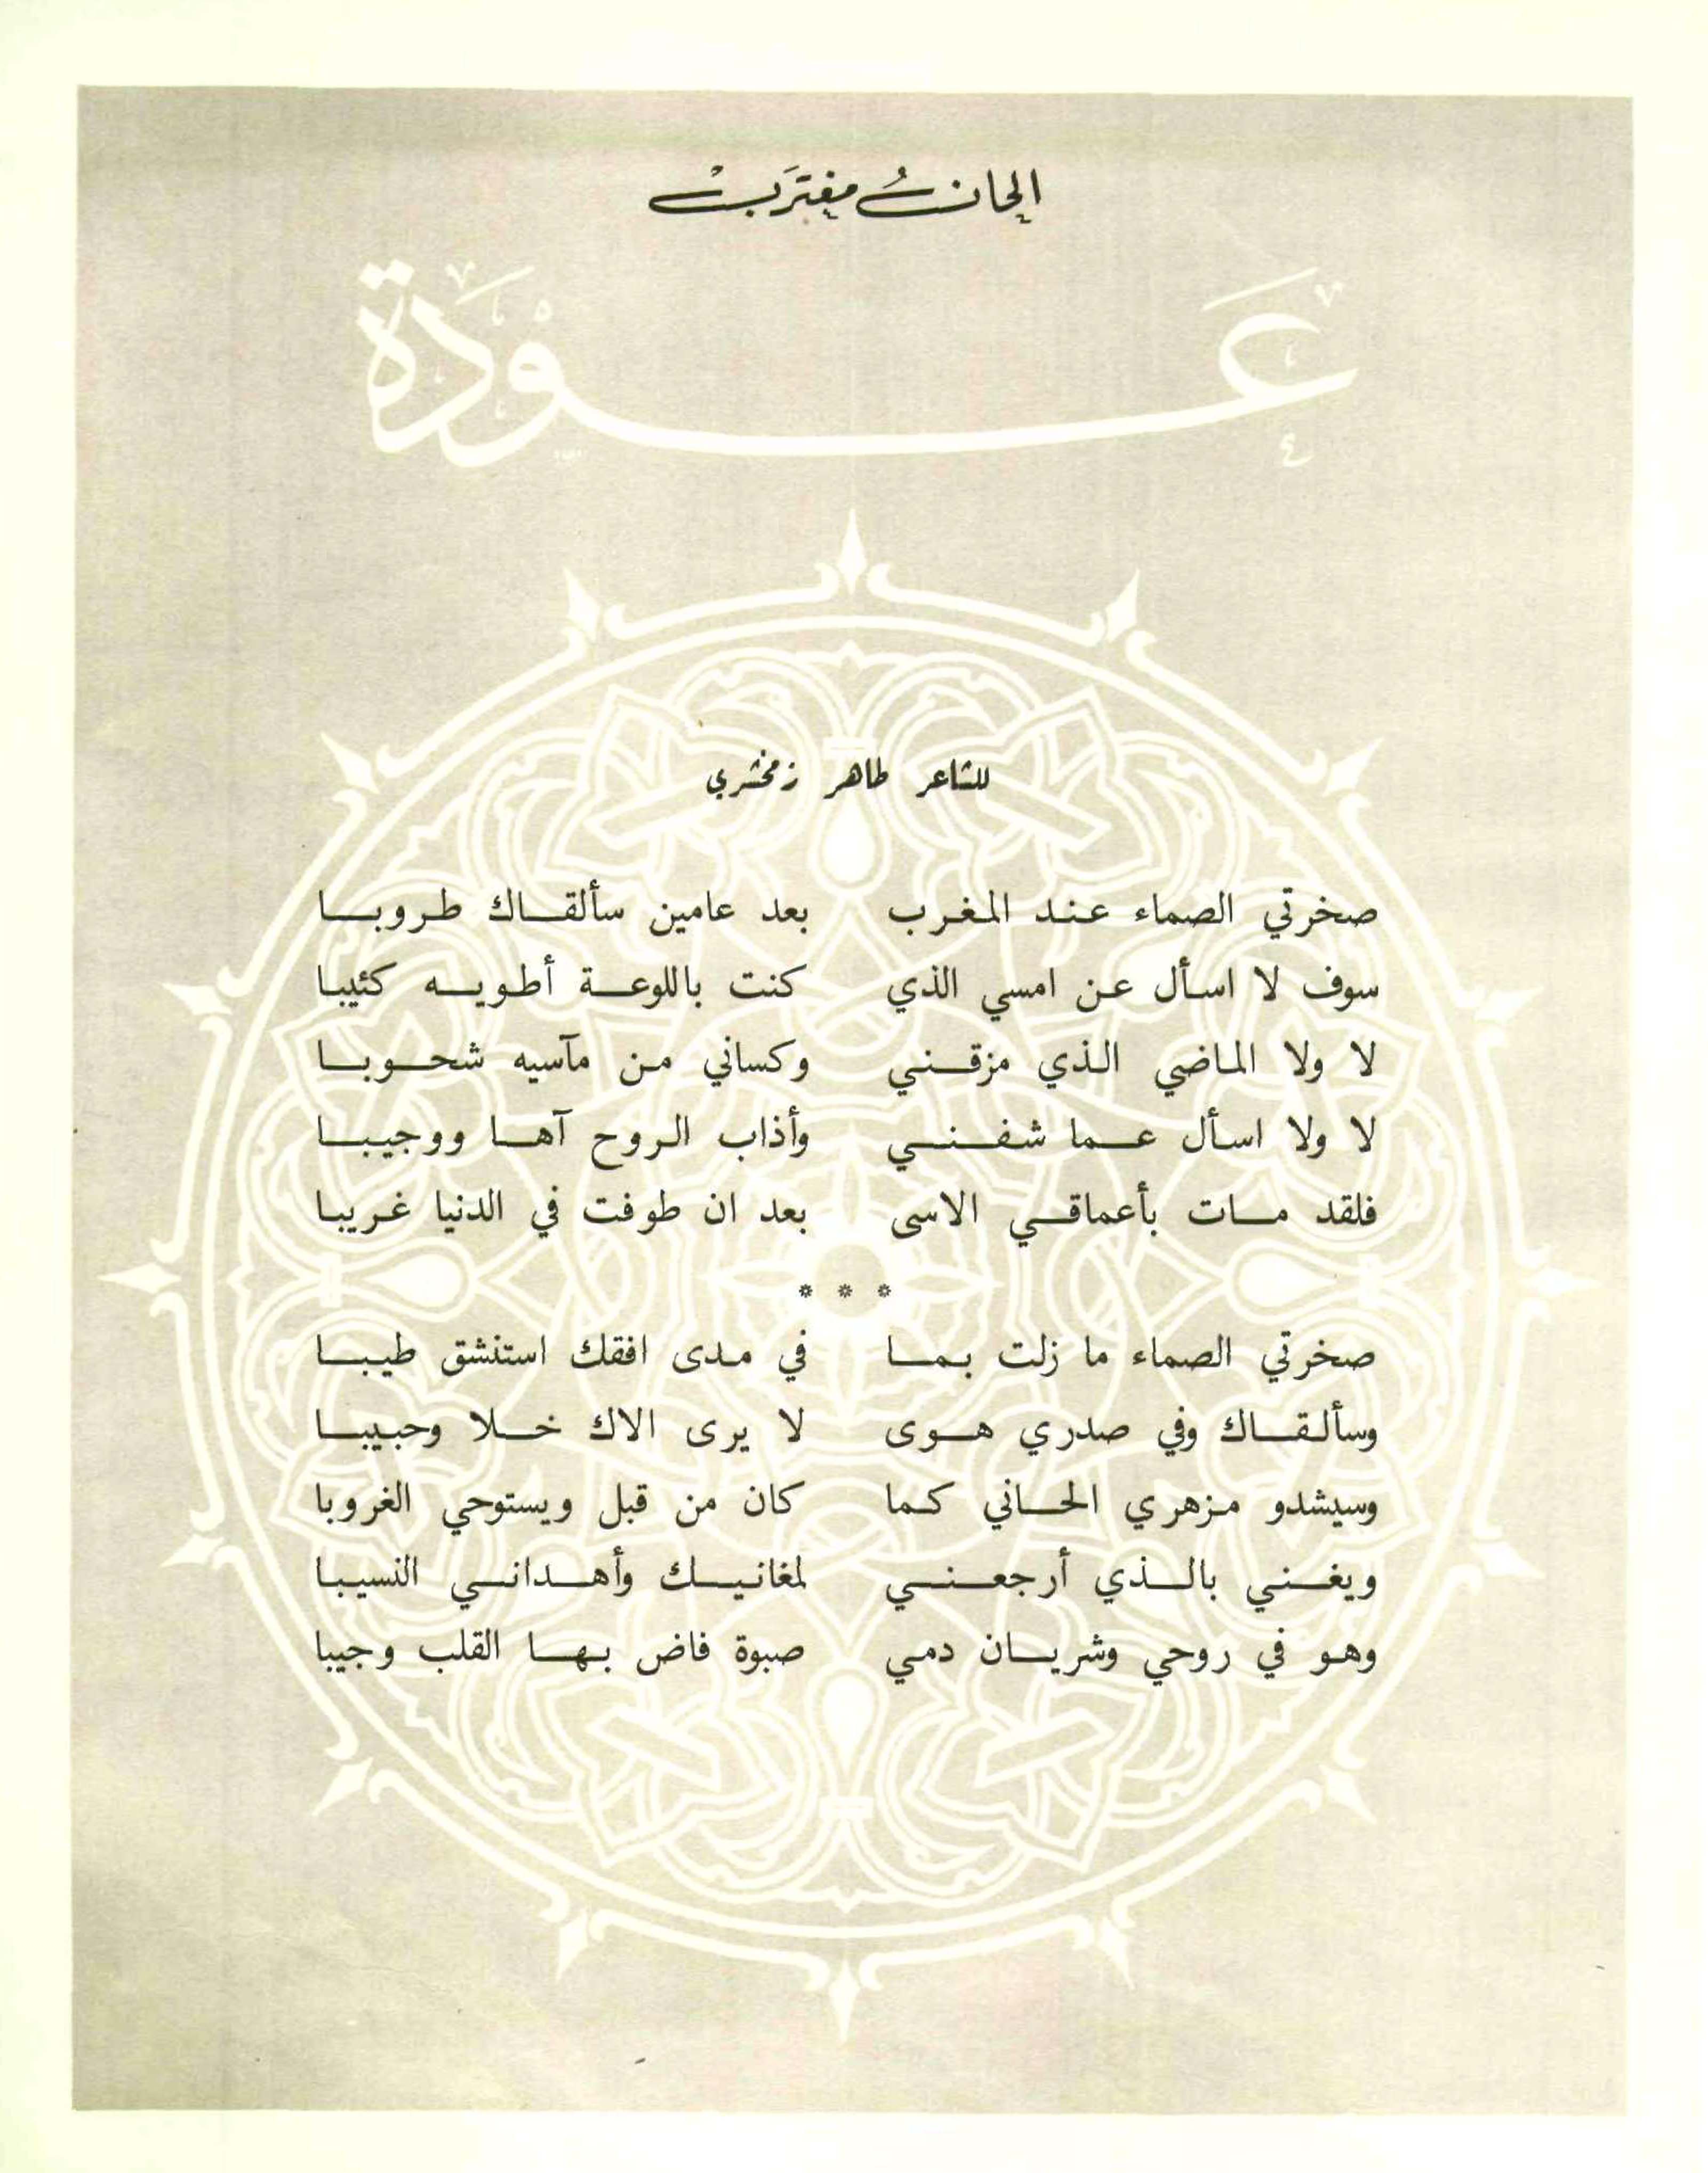 الحانُ مغترَبْ
عَوْدَة
للشاعر طاهر زمخشري
صخرتي الصماء عند المغرب بعد عامين سألقاك طروبا
سوف لا اسأل عن امسي الذي كنت باللوعة أطويه كئيبا
لا ولا الماضي الذي مزقني وكساني من مآسيه شحوبا
لا ولا اسأل عما شفني وأذاب الروح آها ووجيبا
فلقد مات بأعماقي الاسى بعد ان طوفت في الدنيا غريبا
* * *
صخرتي الصماء ما زلت بما في مدى افقك استنشق طيبا
وسألقاك وفي صدري هوى لا يرى الاك خلا وحبيبا
وسيشدو مزهري الحاني كما كان من قبل ويستوحي الغروبا
ويغني بالذي أرجعني لمغانيك وأهداني النسيبا
وهو في روحي وشريان دمي صبوة فاض بها القلب وجيبا